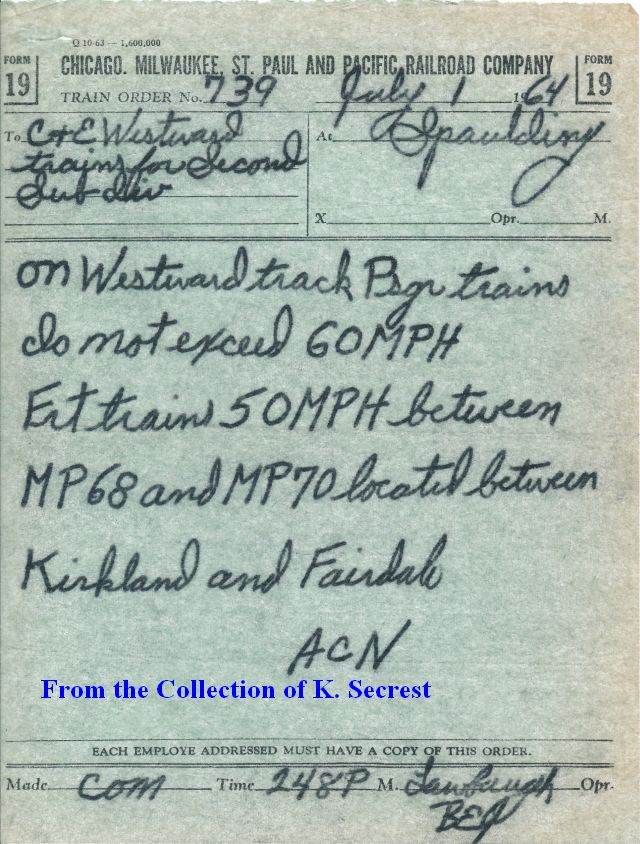 Q 10-63 — 1,600,000
FORM 19
CHICAGO, MILWAUKEE, ST. PAUL AND PACIFIC RAILROAD COMPANY
FORM 19
TRAIN ORDER No. 739 July 1 1964
To C+E Westward
trains for Second
Sub div
At Spaulding
X Opr. M.
On Westward track Psgr trains
do not exceed 60MPH
Frt trains 50MPH between
MP68 and MP70 located between
Kirkland and Fairdale
ACN
From the Collection of K. Secrest
EACH EMPLOYE ADDRESSED MUST HAVE A COPY OF THIS ORDER.
Made Com Time 248P M. Opr.